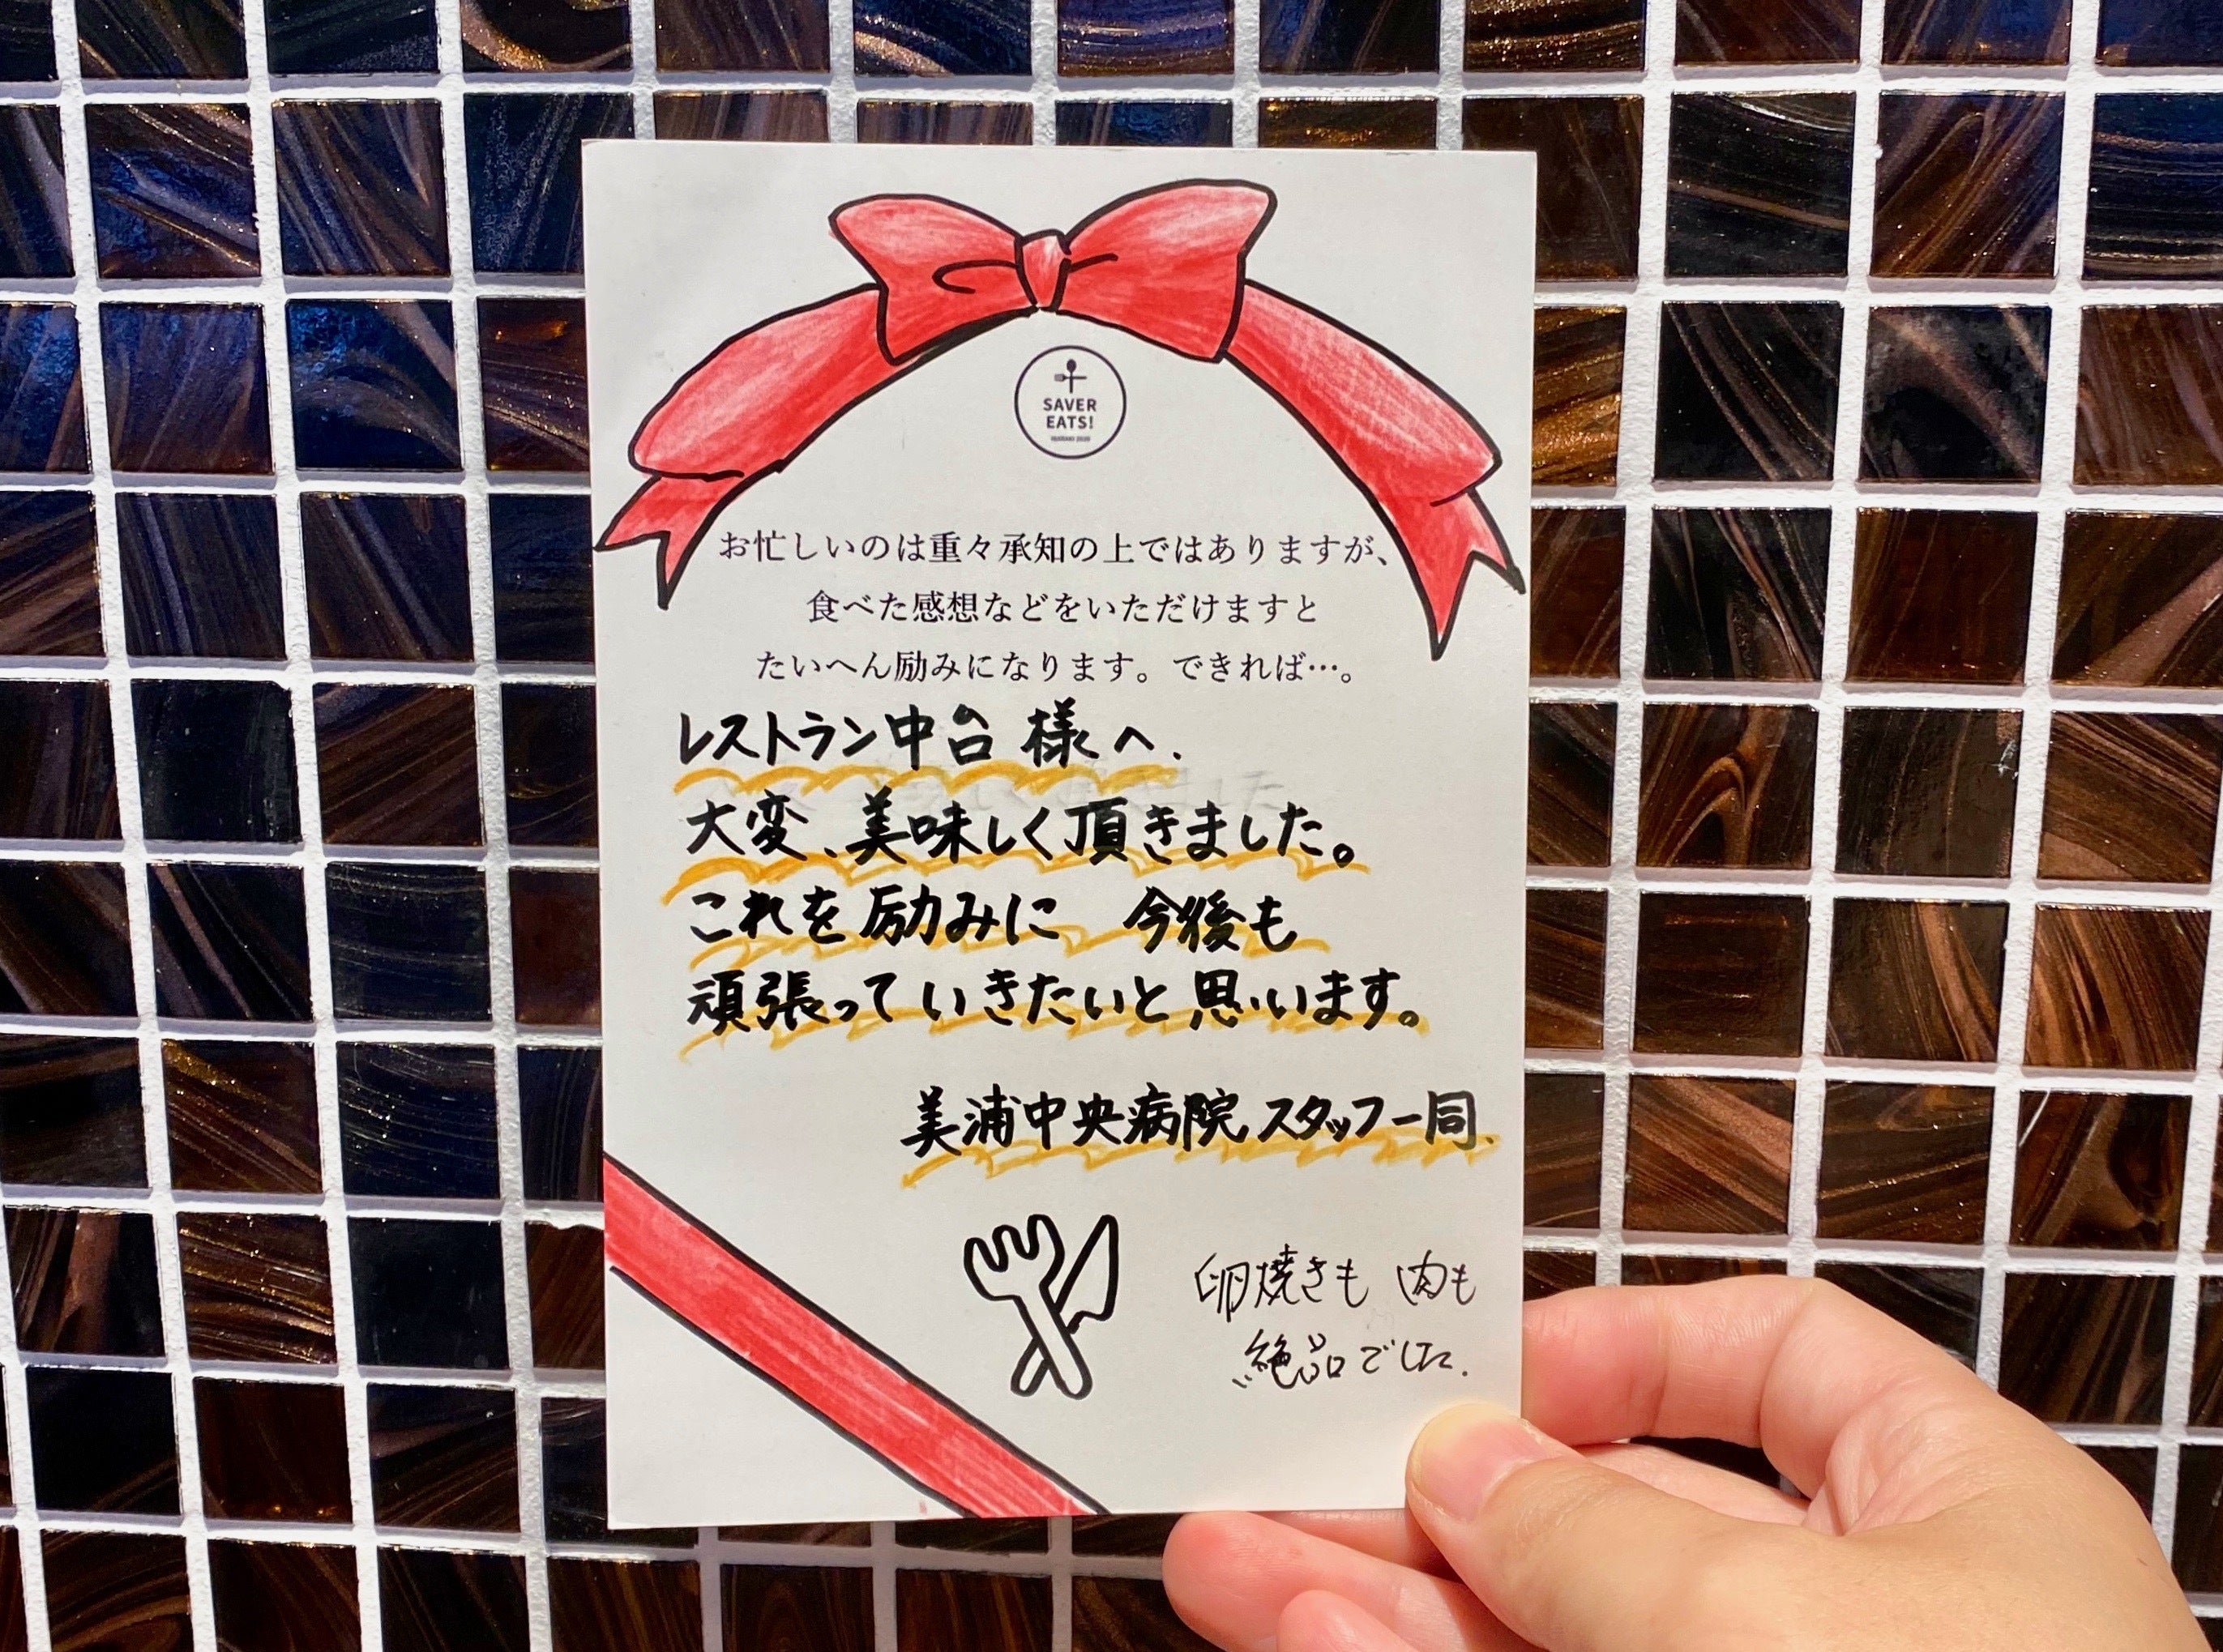 SAVER
EATS!
IBARAKI 2020
お忙しいのは重々承知の上ではありますが、
食べた感想などをいただけますと
たいへん励みになります。できれば…。
レストラン中台 様へ.
大変、美味しく頂きました。
これを励みに 今後も
頑張っていきたいと思います。
美浦中央病院スタッフ一同.
卵焼きも 肉も
絶品でした.